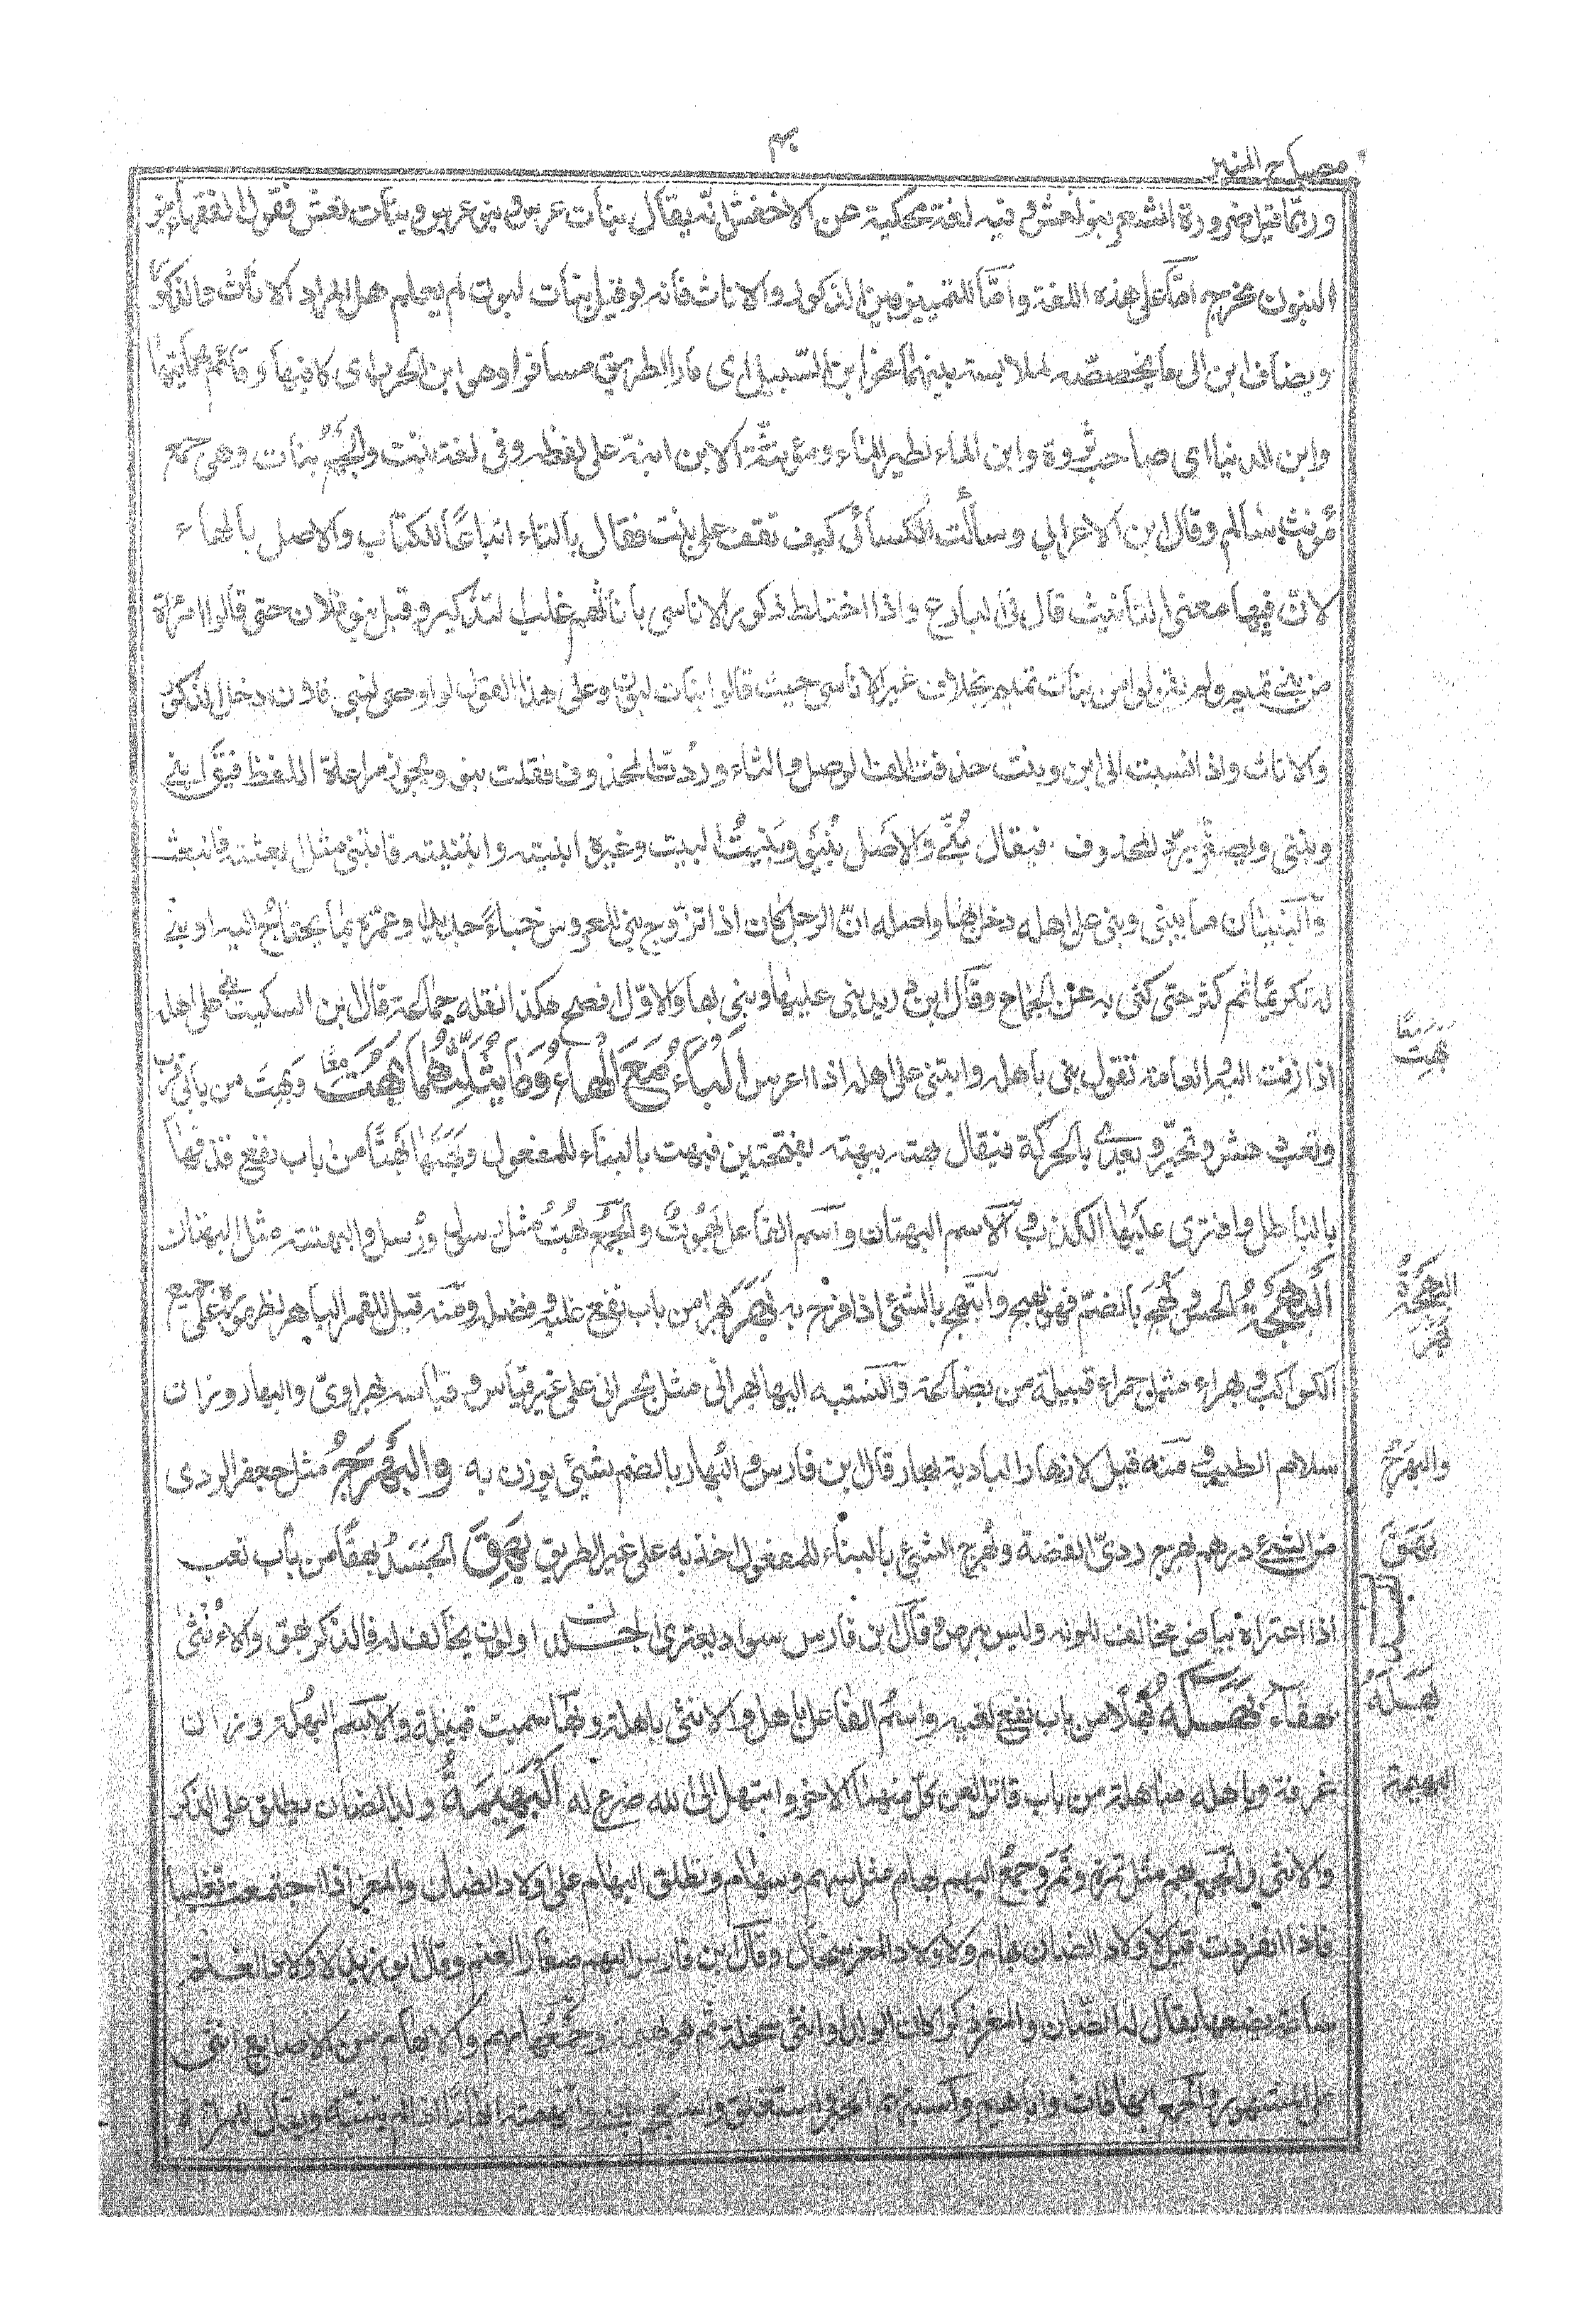 مصباح المنير
وربما قيل ضرورة الشعر بنو نعش وفيه لغة محكية عن الاخفش انه يقال بنات عرس وبنو عرس وبنات نعش فقول الفقهاء بنو
اللبون مخرج اما على هذه اللغة واما للتمييز بين الذكور والاناث فانه لو قيل بنات لبون لم يعلم هل المراد الاناث او الذكور
ويضاف ابن الى ما يخصصه لملابسة بينهما نحو ابن السبيل اى مار الطريق مسافرا وهو ابن الحرب اى كافيها وقائم بحمايتها
وابن الدنيا اى صاحب ثروة وابن الماء لطير الماء ومؤنثة الابن ابنة على لفظه وفى لغة بنت والجمع بنات وهى جمع
مؤنث سالم وقال ابن الاعرابي وسألت الكسائى كيف تقف على بنت فقال بالتاء اتباعا للكتاب والاصل بالهاء
لان فيها معنى التانيث قال فى البارع واذا اختلط ذكور الاناسى باناثهم غلب التذكير وقيل بنو فلان حتى قالوا امرأة
من بنى تميم ولم يقولوا من بنات تميم بخلاف غير الاناسى حيث قالوا بنات لبون وعلى هذا القول لو اوصى لبنى فلان دخل الذكور
والاناث واذا نسبت الى ابن وبنت حذفت الف الوصل والتاء ورددت المحذوف فقلت بنوى ويجوز مراعاة اللفظ فيقال ابنى
وبنتى ويصغر برد المحذوف فيقال بُنَيّ والاصل بنيو وبنيت البيت وغيره ابنيه وابتنيته فانبنى مثل بعثته فانبعث
والبنيان ما يبنى وبنى على اهله دخل بها واصله ان الرجل كان اذا تزوج بنى للعروس خباء جديدا وعمره بما يحتاج اليه او بنى
له تكريما ثم كثر حتى كنى به عن الجماع وقال ابن دريد بنى عليها وبنى بها والاول افصح هكذا نقله جماعة قال ابن السكيت بنى على اهله
اذا زفت اليه والعامة تقول بنى باهله وابتنى على اهله اذا اعرس الباء مع الهاء وما يثلثهما بهت وبهت من بابى قرب
وتعب دهش وتحير ويعدى بالحركة فيقال بهته يبهته بفتحتين فبهت بالبناء للمفعول وبهتها بهتا من باب نفع قذفها
بالباطل وافترى عليها الكذب والاسم البهتان واسم الفاعل بهوت والجمع بهت مثل رسول ورسل والبهتة مثل البهتان
البهجة الحسن وبهج بالضم فهو بهيج وابتهج بالشئ اذا فرح به بهره بهرا من باب نفع غلبه وفضله ومنه قيل للقمر الباهر لظهوره على جميع
الكواكب وبهراء مثل حمراء قبيلة من قضاعة والنسبة اليها بهرانى مثل بحرانى على غير قياس وقياسه بهراوى والبهار وزان
سلام الطيب ومنه قيل لازهار البادية بهار قال ابن فارس والبهار بالضم شئ يوزن به والبهرج مثل جعفر الردى
من الشئ درهم بهرج ردى الفضة وبهرج الشئ بالبناء للمفعول اخذ به على غير الطريق بهق الجسد بهقا من باب تعب
اذا اعتراه بياض مخالف للونه وليس ببرص وقال ابن فارس سواد يعترى الجلد او لون يخالف لونه فالذكر ابهق والانثى
بهقاء بهله بهلا من باب نفع لعنه واسم الفاعل باهل والانثى باهلة وبها سميت قبيلة والاسم البهلة وزان
غرفة وباهله مباهلة من باب قاتل لعن كل منهما الاخر وابتهل الى الله ضرع له البهيمة ولد الضان يطلق على الذكر
والانثى والجمع بهم مثل تمرة وتمر وجمع البهم بهام مثل سهم وسهام وتطلق البهام على اولاد الضان والمعز اذا اجتمعت تغليبا
فاذا انفردت قيل لاولاد الضان بهام ولاولاد المعز سخال وقال ابن فارس البهم صغار الغنم وقال ابو زيد لاولاد الغنم
ساعة تضعها يقال له الضان والمعز ذكرا كان الولد او انثى سخلة ثم هى بهيمة وجمعها بهم والابهام من الاصابع انثى
على المشهور والجمع ابهامات واباهيم واستبهم الخبر واستغلق واستعجم
بهت معا
البهجة
بهر
والبهرج
بهق
بهله
البهيمة